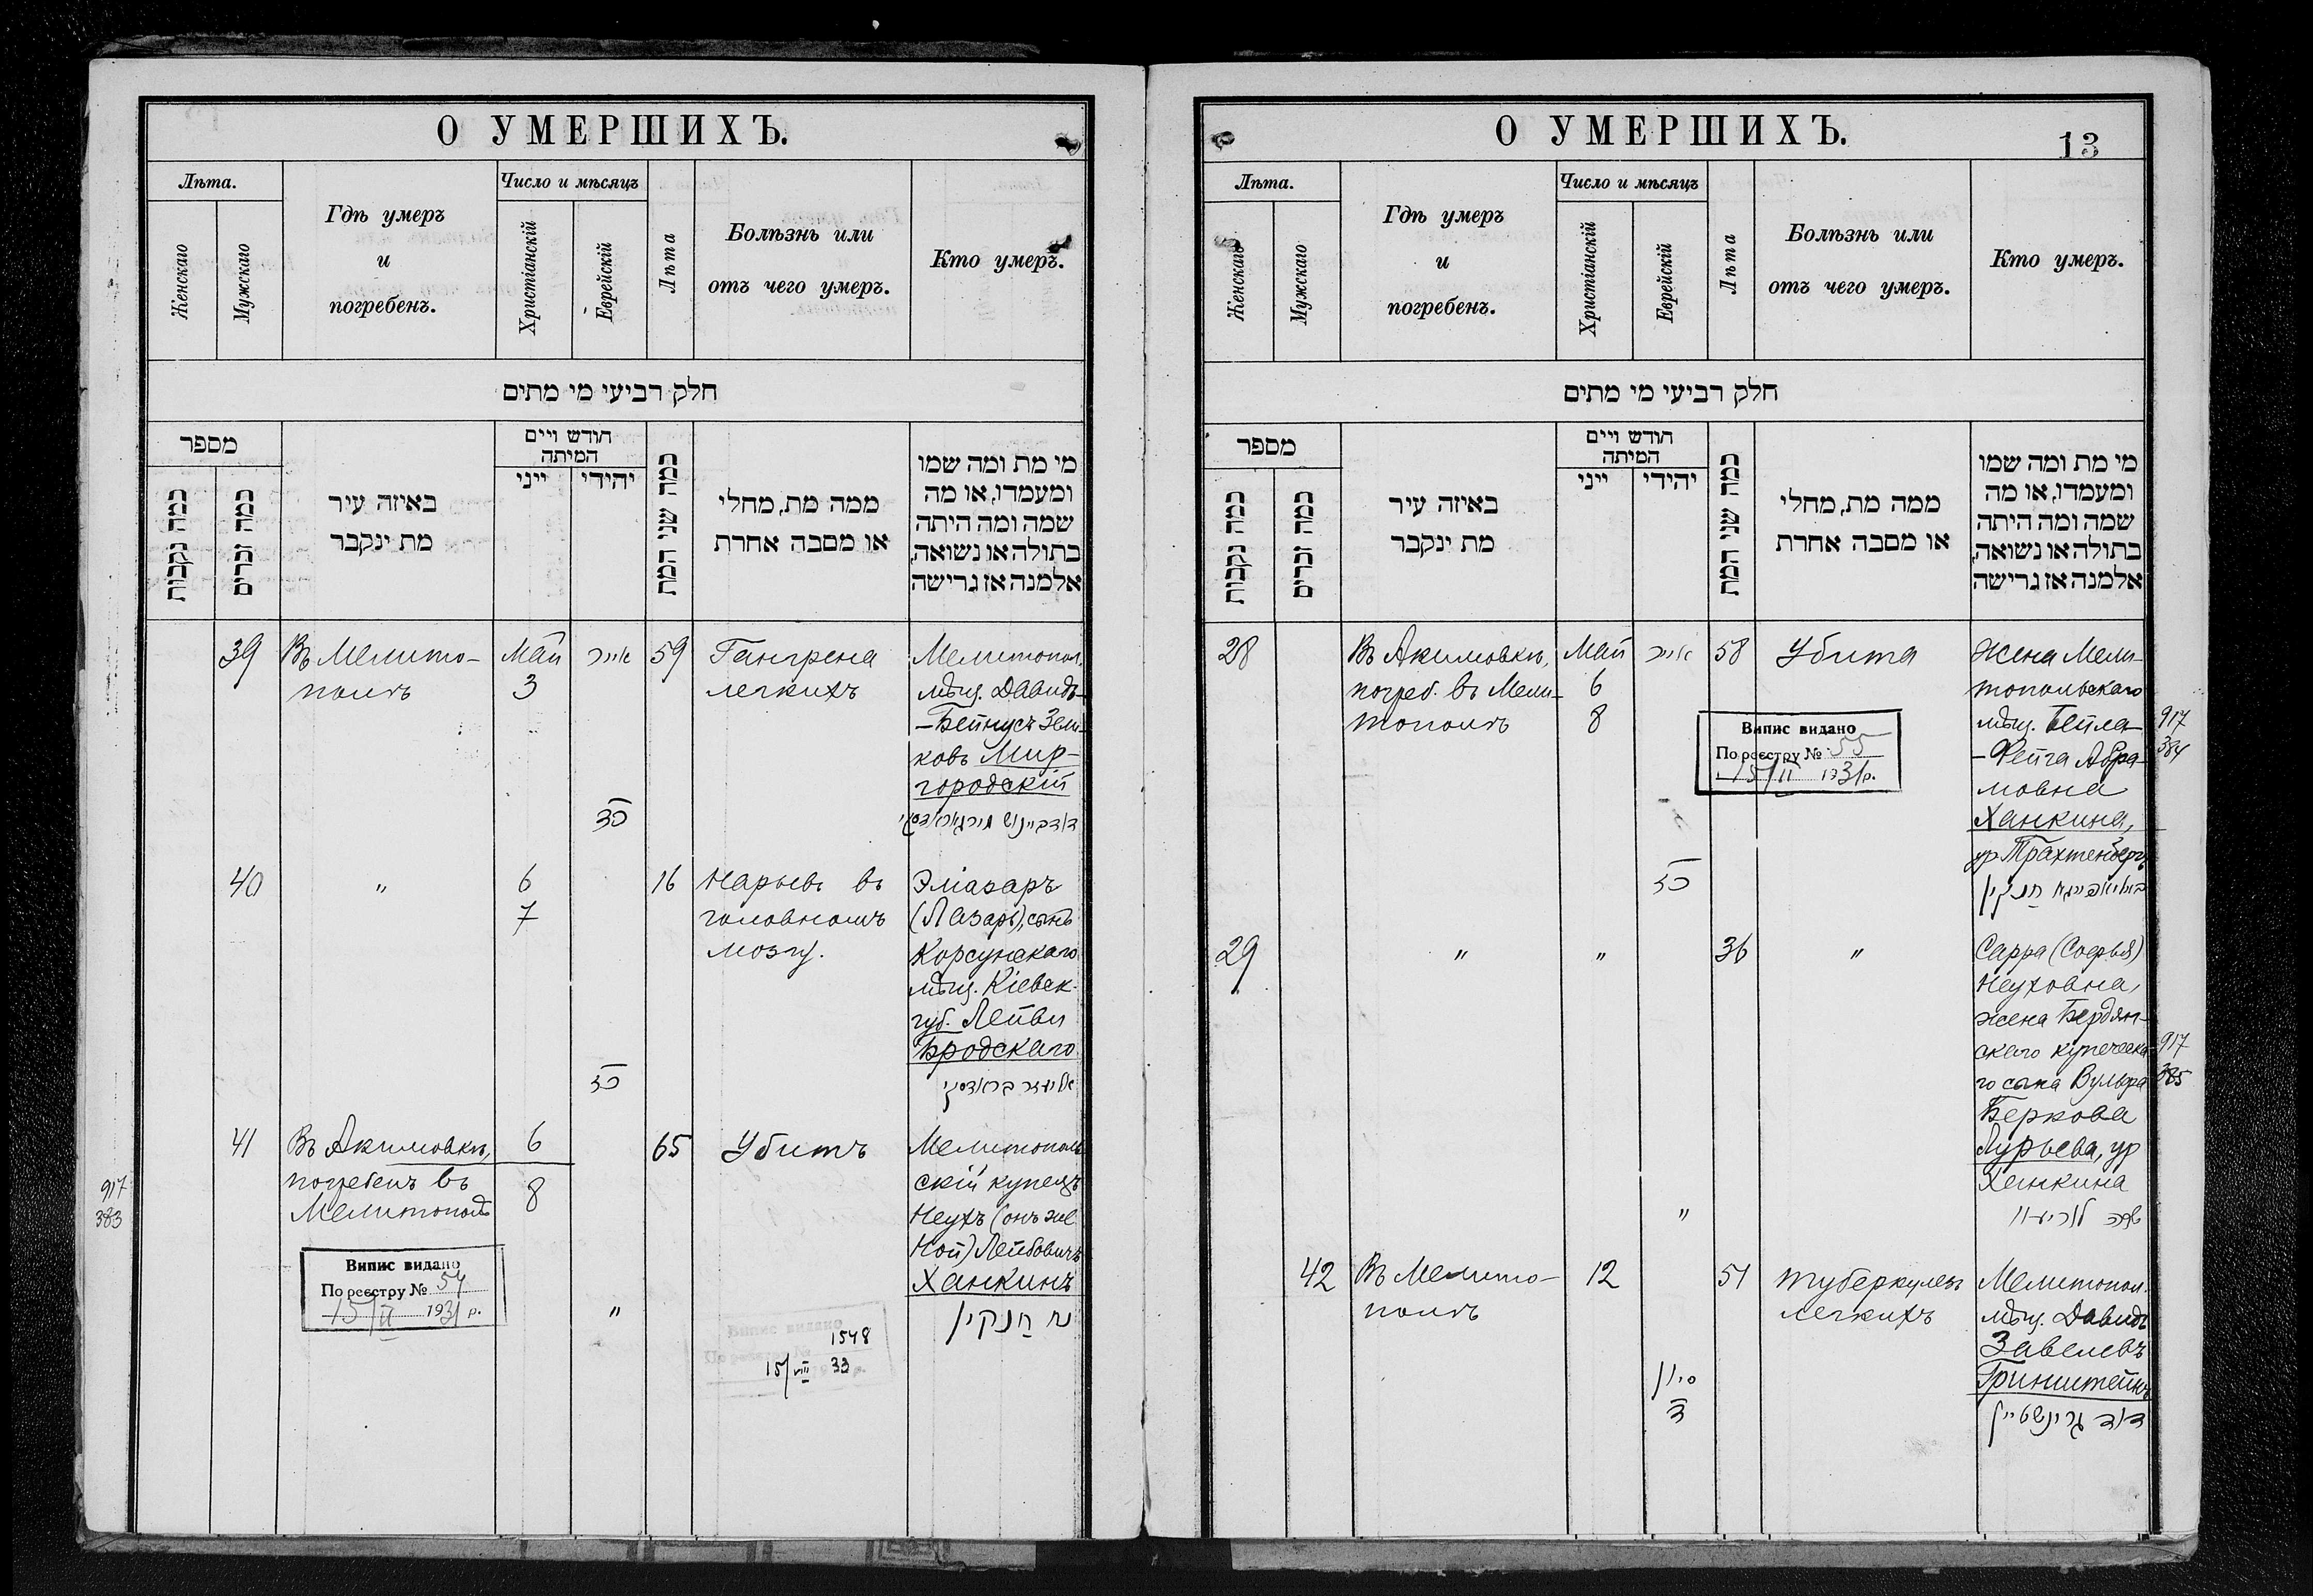 О УМЕРШИХЪ.
Лѣта.
Женскаго
Мужскаго
Гдѣ умеръ
и
погребенъ.
Число и мѣсяцъ
Христіанскій
Еврейскій
Лѣта
Болѣзнь или
отъ чего умеръ.
Кто умеръ.
חלק רביעי מי מתים
מספר
כמה נקבות
כמה זכרים
באיזה עיר
מת ינקבר
חודש ויים
המיתה
ייני
יהידי
כמה שני המת
ממה מת, מחלי
או מסבה אחרת
מי מת ומה שמו
ומעמדו, או מה
שמה ומה היתה
בתולה או נשואה,
אלמנה אז גרישה
39
Въ Мелито-
полѣ
Май
3
אייר
59
Гангрена
легкихъ
Мелитопол.
мѣщ. Давидъ-
-Бейнусъ Зели-
ковъ Мир-
городскій
40
"
6
7
16
Нарывъ въ
головномъ
мозгу.
Эліазаръ
(Лазарь), сынъ
Корсунскаго
мѣщ. Кіевск.
губ. Лейви
Бродскаго
אליעזר בראדסקי
917
383
41
Въ Акимовкѣ,
погребенъ въ
Мелитополѣ
6
8
65
Убитъ
Мелитополь
скій купецъ
Неухъ (онъ же
Ной) Лейбовичъ
Ханкинъ
נח חנקין
"
Випис видано
По реєстру № 54
15/II 1931 р.
Випис видано
1548
15/VIII 33
О УМЕРШИХЪ.
13
Лѣта.
Женскаго
Мужскаго
Гдѣ умеръ
и
погребенъ.
Число и мѣсяцъ
Христіанскій
Еврейскій
Лѣта
Болѣзнь или
отъ чего умеръ.
Кто умеръ.
חלק רביעי מי מתים
מספר
כמה נקבות
כמה זכרים
באיזה עיר
מת ינקבר
חודש ויים
המיתה
ייני
יהידי
כמה שני המת
ממה מת, מחלי
או מסבה אחרת
מי מת ומה שמו
ומעמדו, או מה
שמה ומה היתה
בתולה או נשואה,
אלמנה אז גרישה
28
Въ Акимовкѣ,
погреб. въ Мели-
тополѣ
Май
6
8
אייר
58
Убита
Жена Мели-
топольскаго
мѣщ. Бейла-
-Фейга Абра-
мовна
Ханкина,
ур. Трахтенбергъ
917
384
Випис видано
По реєстру № 55
15/II 1931 р.
29
"
"
36
"
Сарра (Софья)
Неуховна,
жена Бердян-
скаго купеческа-
го сына Вульфа
Беркова
Лурьева, ур
Ханкина
"
917
385
42
Въ Мелито-
полѣ
12
סיון
51
туберкулезъ
легкихъ
Мелитопол.
мѣщ. Давидъ
Завелевъ
Гринштейнъ
דוד גרינשטיין